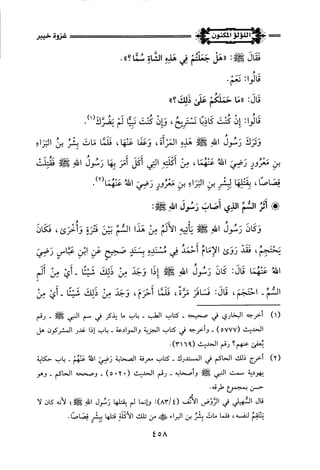 اللؤلؤ المكنون
غزوة خيبر
فَقَالَ ﷺ: «هَلْ جَعَلْتُمْ فِي هَذِهِ الشَّاةِ سُمًّا؟».
قَالُوا: نَعَمْ.
قَالَ: «مَا حَمَلَكُمْ عَلَى ذَلِكَ؟».
قَالُوا: إِنْ كُنْتَ كَاذِبًا نَسْتَرِيحُ، وَإِنْ كُنْتَ نَبِيًّا لَمْ يَضُرَّكَ(١).
وَتَرَكَ رَسُولُ اللهِ ﷺ هَذِهِ المَرْأَةَ، وَعَفَا عَنْهَا، فَلَمَّا مَاتَ بِشْرُ بْنُ البَرَاءِ
بنِ مَعْرُورٍ رَضِيَ اللهُ عَنْهُمَا، مِنْ أَكْلَتِهِ التِي أَكَلَ أَمَرَ بِهَا رَسُولُ اللهِ ﷺ فَقُتِلَتْ
قِصَاصًا، بِقَتْلِهَا لِبِشْرِ بنِ البَرَاءِ بنِ مَعْرُورٍ رَضِيَ اللهُ عَنْهُمَا(٢).
❁ أَثَرُ السُّمِّ الذِي أَصَابَ رَسُولَ اللهِ ﷺ:
وَكَانَ رَسُولُ اللهِ ﷺ يَأْتِيهِ الأَلَمُ مِنْ هَذَا السُّمِّ بَيْنَ فَتْرَةٍ وَأُخْرَى، فَكَانَ
يَحْتَجِمُ، فَقَدْ رَوَى الإِمَامُ أَحْمَدُ فِي مُسْنَدِهِ بِسَنَدٍ صَحِيحٍ عَنِ ابْنِ عَبَّاسٍ رَضِيَ
اللهُ عَنْهُمَا قَالَ: كَانَ رَسُولُ اللهِ ﷺ إِذَا وَجَدَ مِنْ ذَلِكَ شَيْئًا ـ أَيْ مِنْ أَلَمِ
السُّمِّ ـ احْتَجَمَ، قَالَ: فَسَافَرَ مَرَّةً، فَلَمَّا أَحْرَمَ، وَجَدَ مِنْ ذَلِكَ شَيْئًا ـ أَيْ مِنْ
(١) أخرجه البخاري في صحيحه ـ كتاب الطب ـ باب ما يذكر في سم النبي ﷺ ـ رقم
الحديث (٥٧٧٧) ـ وأخرجه في كتاب الجزية والموادعة ـ باب إذا غدر المشركون هل
يُعفى عنهم؟ رقم الحديث (٣١٦٩).
(٢) أخرج ذلك الحاكم في المستدرك ـ كتاب معرفة الصحابة رَضِيَ اللهُ عَنْهُمْ ـ باب حكاية
يهودية سمت النبي ﷺ وأصحابه ـ رقم الحديث (٥٠٢٠) ـ وصححه الحاكم ـ وهو
حسن بمجموع طرقه.
قال السهيلي في الرَّوْضِ الأُنُفِ (٨٣/٤): وإنما لم يقتلها رَسُولُ اللهِ ﷺ؛ لأنه كان لا
يَنتقِمُ لنفسه، فلما مات بِشْرُ بن البراء ﵁ من تلك الأكْلَةِ قتلها بِبِشْرٍ قِصاصًا.
٤٥٨